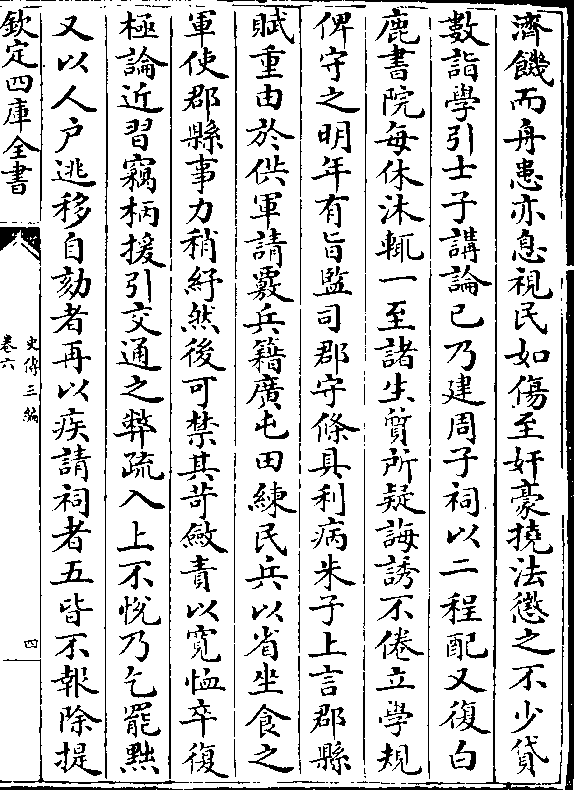 濟饑而舟患亦息視民如傷至奸豪撓法懲之不少貸
數詣學引士子講論已乃建周子祠以二程配又復白
鹿書院每休沐輒一至諸生質所疑誨誘不倦立學規
俾守之明年有旨監司郡守條具利病朱子上言郡縣
賦重由於供軍請覈兵籍廣屯田練民兵以省坐食之
軍使郡縣事力稍紓然後可禁其苛斂責以寛恤卒復
極論近習竊柄援引交通之弊疏入上不悅乃乞罷黜
又以人户逃移自劾者再以疾請祠者五皆不報除提
欽定四庫全書
史傳三編
卷六
四